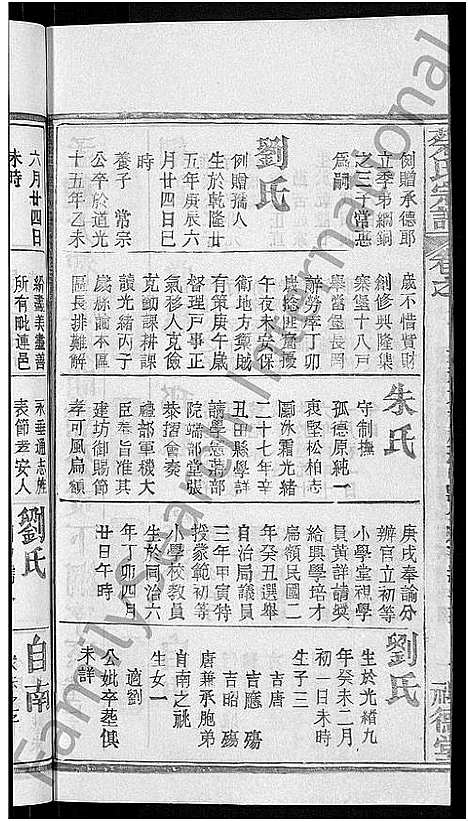 例贈承德郎
立季弟綱銅
之三子常惡
爲嗣
劉氏
例贈孺人
生於乾隆廿
五年庚辰六
月廿四日巳
時
養子 常宗
公卒於道光
十五年乙未
六月廿四日
未時
歲不惜貲財
創修興隆集
寨堡十八戸
舉當堡長岡
辭勞瘁丁卯
歲捻匪
午夜未安保
衛地方
有策庚午歲
督理戸事正
氣移人克儉
克勤課耕課
讀光緒丙子
歲縣諭本區
區長排難解
紛
所有毗連邑
朱氏
守制撫
孤德原純一
衷堅松柏志
勵氷霜光緒
二十七年辛
丑田縣學詳
請學憲
院端部堂張
恭摺會奏
禮部軍機大
臣奉旨准其
建坊御賜節
孝可風扁額
永垂通志姓
表節孝安人
劉氏
庚戌奉諭分
辦官立初等
小學堂視學
員黃詳請奬
給興學培才
扁額民國二
年癸丑選舉
自治局議員
三年甲寅特
授豪範初等
小學校教員
生於同治六
年丁卯四月
廿日午時
劉氏
生於光緒九
年癸未二月
初一日未時
生子三
吉唐
吉應 殤
吉昭 殤
唐兼承胞弟
自南之祧
生女一
適劉
公妣卒葬俱
未詳
自南
氏宗譜
卷之
德堂
Family Sharing International